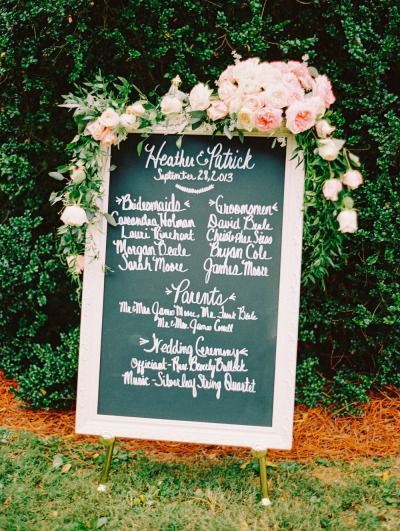 Heather & Patrick
September 28, 2013
Bridesmaids
Cassandra Norman
Lauri Rinehart
Morgan Beale
Sarah Moore
Groomsmen
David Beale
Christopher
Bryan Cole
James Moore
Parents
Mr. & Mrs. James Moore, Mr. Frank Beale
Mr. & Mrs. James Correll
Wedding Ceremony
Officiant - Rev. Beverly Bullock
Music - Silverleaf String Quartet